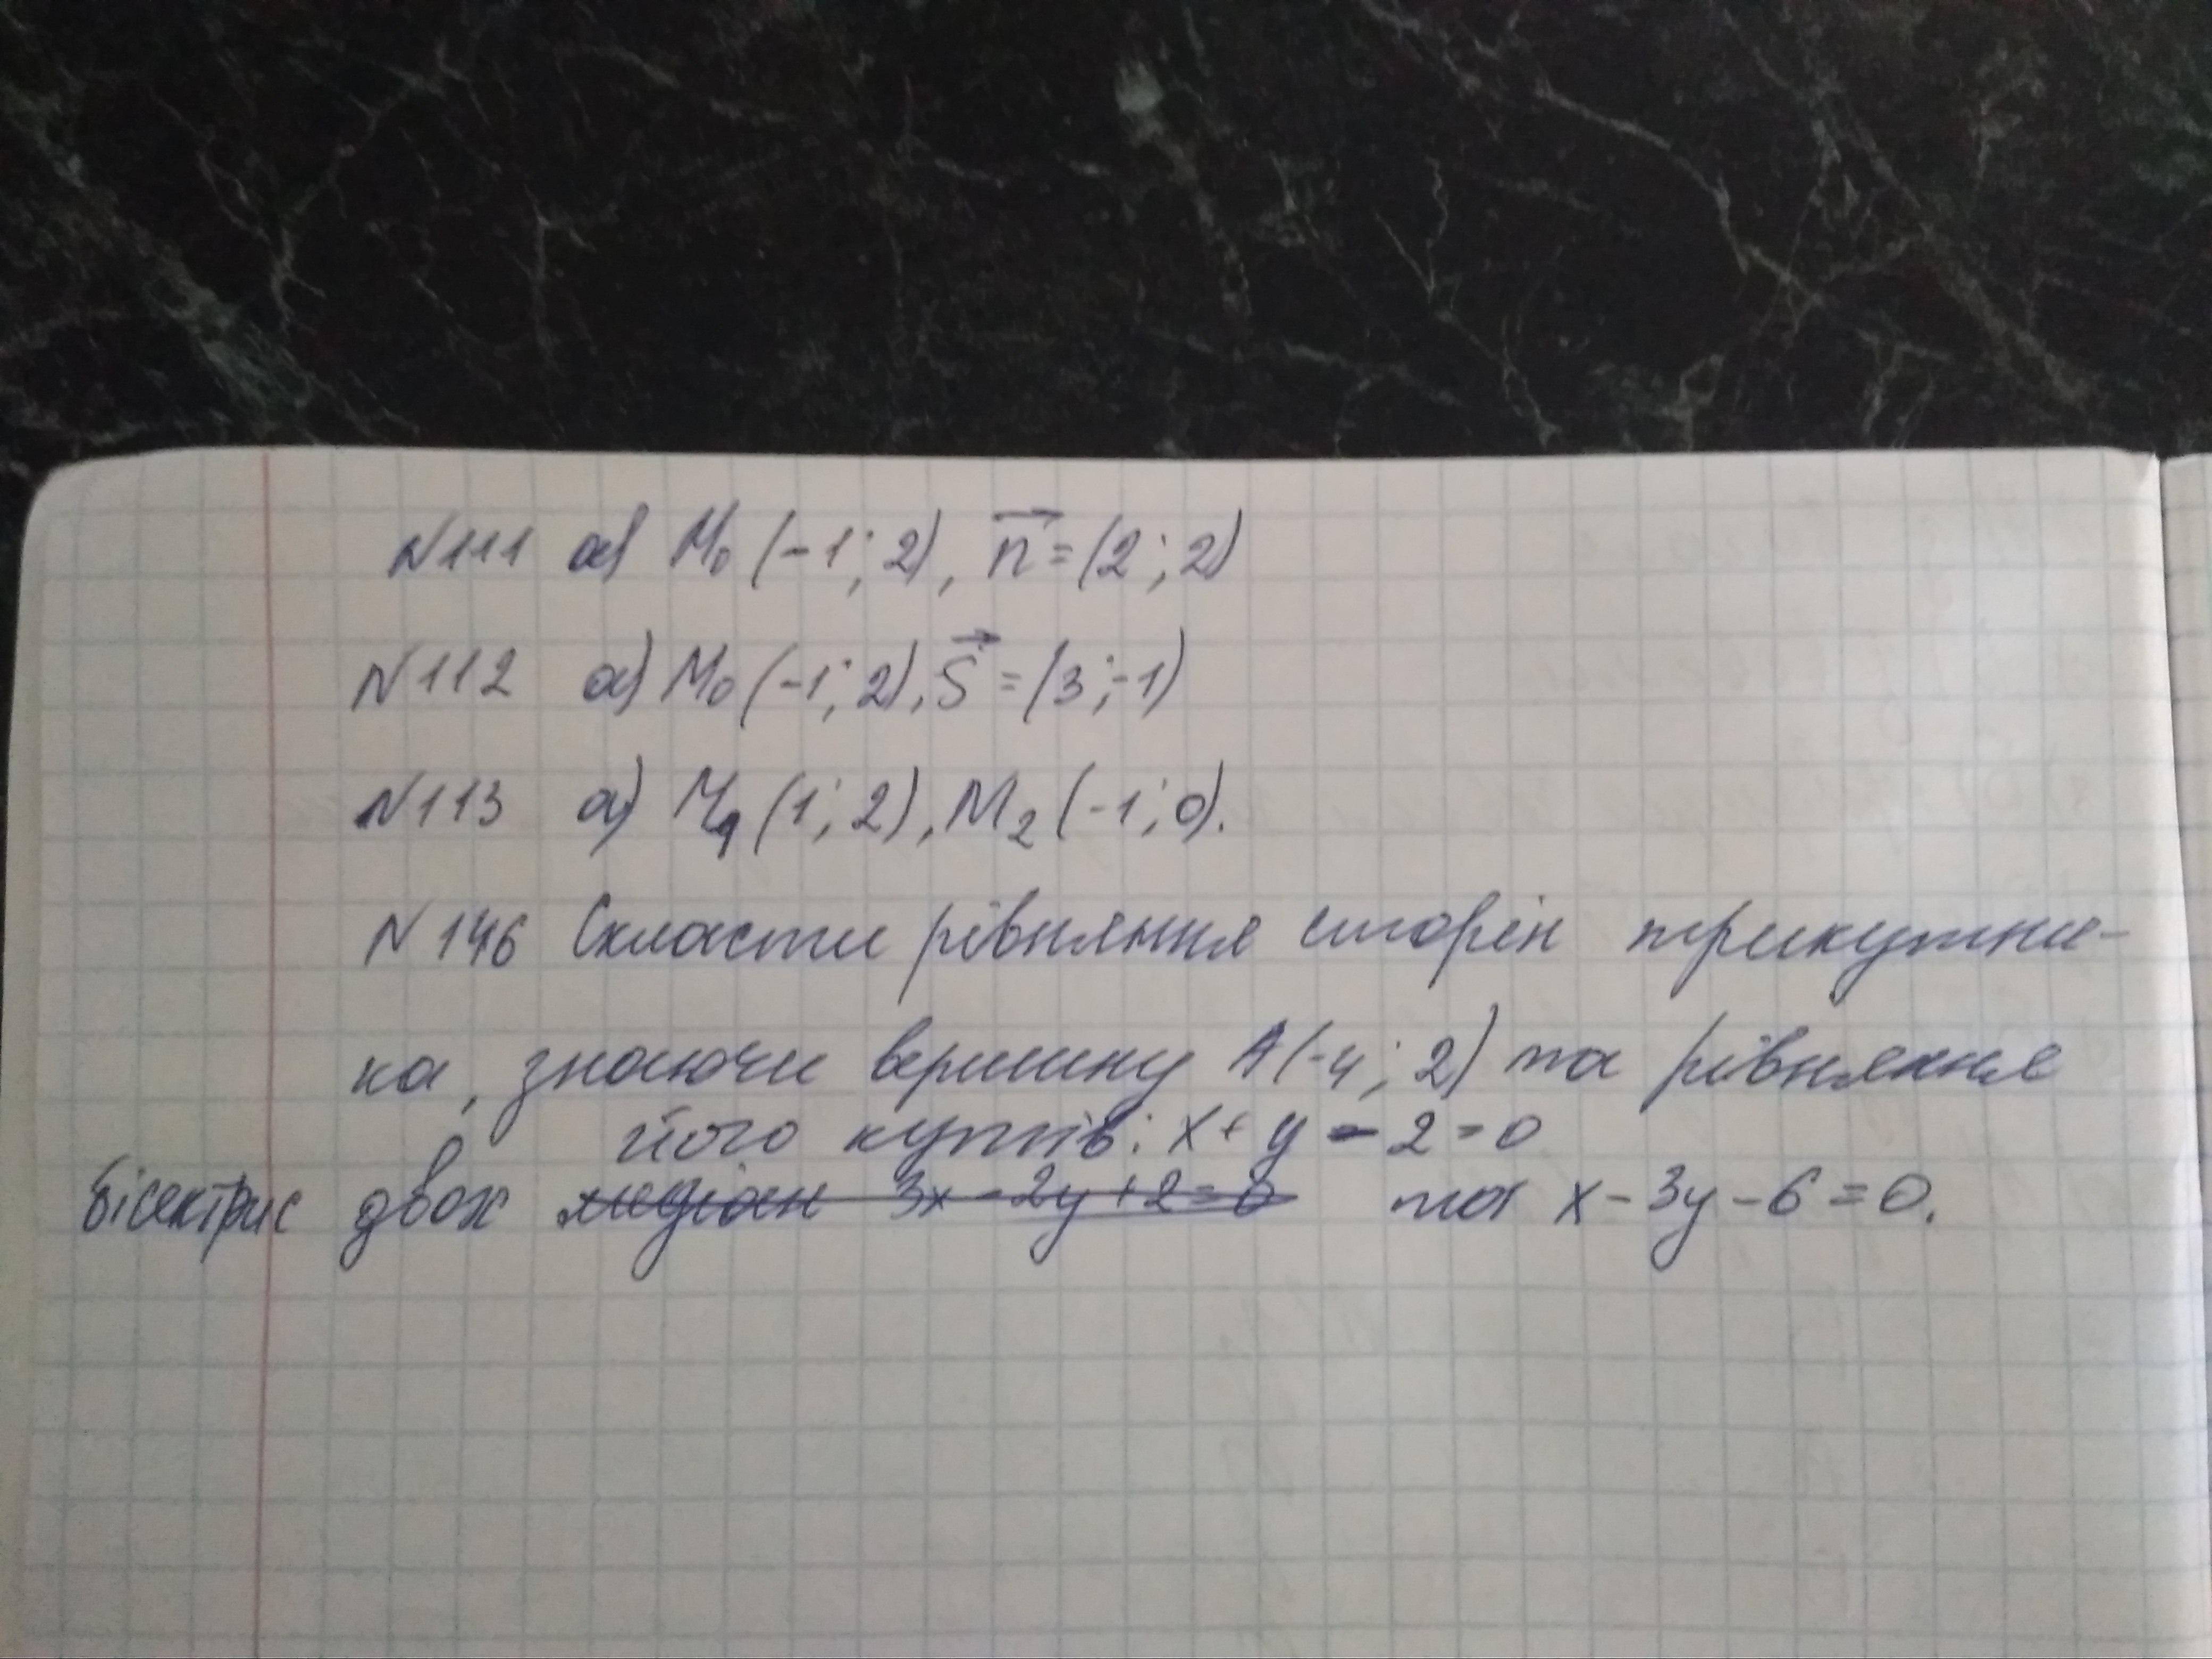 N111 а) M₀ (-1; 2), n⃗ = (2; 2)
N112 а) M₀ (-1; 2), S⃗ = (3; -1)
N113 а) M₁ (1; 2), M₂ (-1; 0).
N 146 Скласти рівняння сторін трикутни-
ка, знаючи вершину A (-4; 2) та рівняння
його кутів: x + y - 2 = 0
бісектрис двох медіан 3x - 2y + 2 = 0 та x - 3y - 6 = 0.